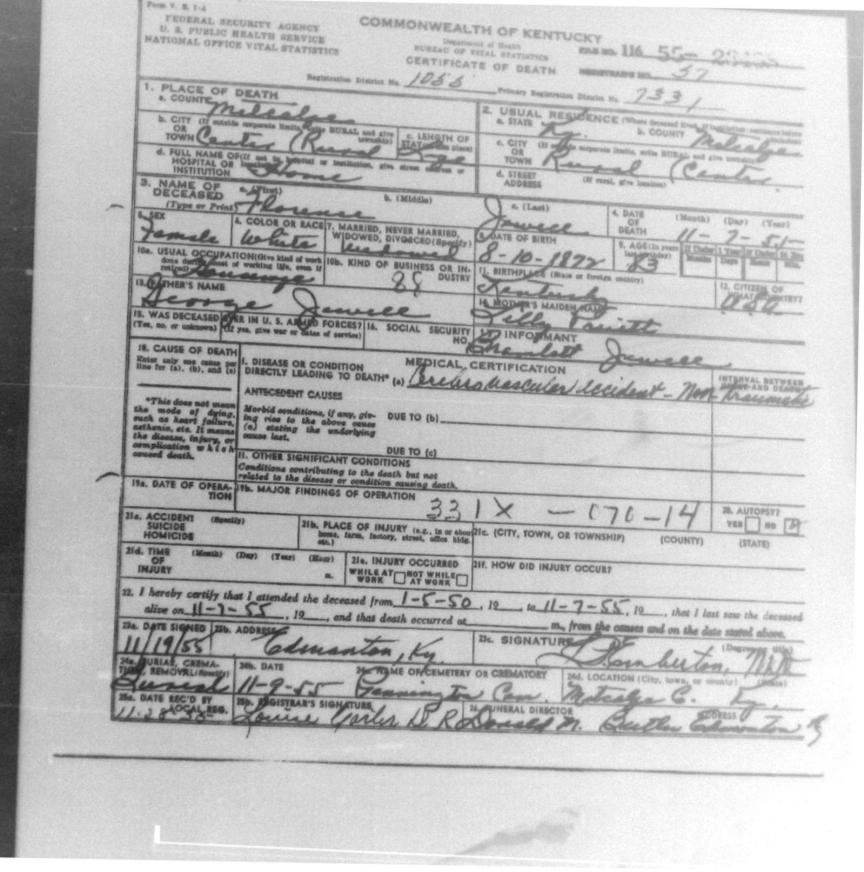 Form V. S. 1-A
FEDERAL SECURITY AGENCY
U. S. PUBLIC HEALTH SERVICE
NATIONAL OFFICE VITAL STATISTICS
COMMONWEALTH OF KENTUCKY
Department of Health
BUREAU OF VITAL STATISTICS
CERTIFICATE OF DEATH
FILE NO. 116 55-
REGISTRAR'S NO. 57
Registration District No. 1055 Primary Registration District No. 7331
1. PLACE OF DEATH
a. COUNTY Metcalfe
b. CITY (If outside corporate limits, write RURAL and give township)
OR
TOWN Center (Rural
c. LENGTH OF STAY (in this place)
d. FULL NAME OF (If not in hospital or institution, give street address or location)
HOSPITAL OR
INSTITUTION Home
2. USUAL RESIDENCE (Where deceased lived. If institution: residence before
a. STATE Ky. b. COUNTY Metcalfe
c. CITY (If outside corporate limits, write RURAL and give township)
OR
TOWN Rural (Center
d. STREET (If rural, give location)
ADDRESS
3. NAME OF DECEASED (Type or Print)
a. (First) Florence b. (Middle) c. (Last) Jewell
4. DATE OF DEATH (Month) (Day) (Year)
11-7-55
5. SEX Female
6. COLOR OR RACE White
7. MARRIED, NEVER MARRIED, WIDOWED, DIVORCED (Specify) Widowed
8. DATE OF BIRTH 8-10-1872
9. AGE (In years last birthday) 83
10a. USUAL OCCUPATION (Give kind of work done during most of working life, even if retired)
10b. KIND OF BUSINESS OR INDUSTRY
11. BIRTHPLACE (State or foreign country) Kentucky
12. CITIZEN OF WHAT COUNTRY? USA
13. FATHER'S NAME George Jewell
14. MOTHER'S MAIDEN NAME
15. WAS DECEASED EVER IN U. S. ARMED FORCES?
(Yes, no, or unknown) (If yes, give war or dates of service)
16. SOCIAL SECURITY NO.
17. INFORMANT Jewell
18. CAUSE OF DEATH
Enter only one cause per line for (a), (b), and (c)
MEDICAL CERTIFICATION
INTERVAL BETWEEN ONSET AND DEATH
I. DISEASE OR CONDITION
DIRECTLY LEADING TO DEATH* (a) Cerebrovascular accident - Non traumatic
*This does not mean the mode of dying, such as heart failure, asthenia, etc. It means the disease, injury, or complication which caused death.
ANTECEDENT CAUSES
Morbid conditions, if any, giving rise to the above cause (a) stating the underlying cause last.
DUE TO (b)
DUE TO (c)
II. OTHER SIGNIFICANT CONDITIONS
Conditions contributing to the death but not related to the disease or condition causing death.
19a. DATE OF OPERATION
19b. MAJOR FINDINGS OF OPERATION
331X - 070-14
20. AUTOPSY?
YES NO
21a. ACCIDENT (Specify)
SUICIDE
HOMICIDE
21b. PLACE OF INJURY (e.g., in or about home, farm, factory, street, office bldg. etc.)
21c. (CITY, TOWN, OR TOWNSHIP) (COUNTY) (STATE)
21d. TIME OF INJURY (Month) (Day) (Year) (Hour) m.
21e. INJURY OCCURRED
WHILE AT WORK NOT WHILE AT WORK
21f. HOW DID INJURY OCCUR?
22. I hereby certify that I attended the deceased from 1-5-50, 19__, to 11-7-55, 19__, that I last saw the deceased
alive on 11-7-55, 19__, and that death occurred at m., from the causes and on the date stated above.
23a. DATE SIGNED 11/19/55
23b. ADDRESS Edmonton, Ky.
23c. SIGNATURE (Degree or title)
24a. BURIAL, CREMATION, REMOVAL (Specify) Burial
24b. DATE 11-9-55
24c. NAME OF CEMETERY OR CREMATORY Pennington Cem.
24d. LOCATION (City, town, or county) (State) Metcalfe C. Ky.
25a. DATE REC'D BY LOCAL REG. 11-28-55
25b. REGISTRAR'S SIGNATURE Louise
26. FUNERAL DIRECTOR ADDRESS
Donald N. Butler Edmonton Ky